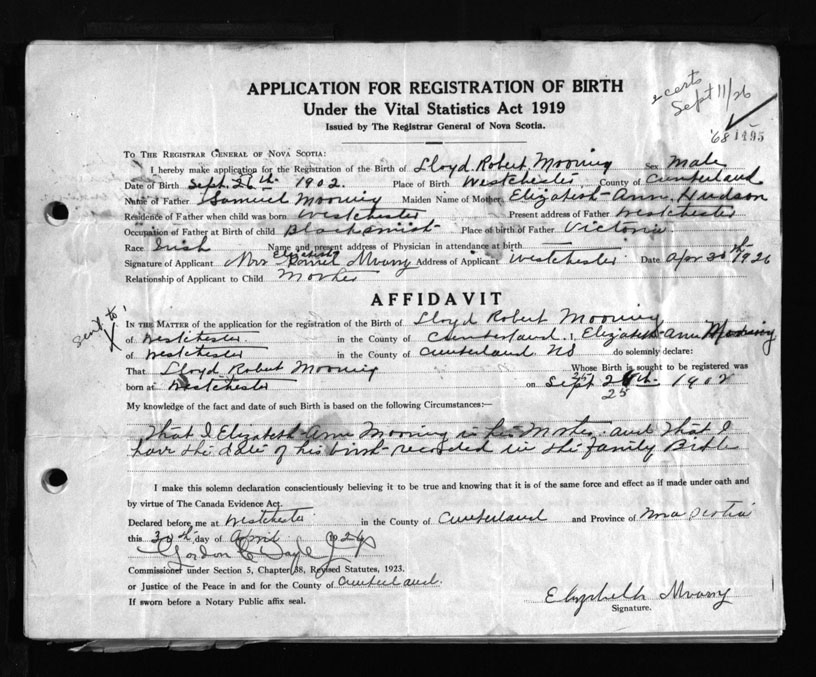 APPLICATION FOR REGISTRATION OF BIRTH
Under the Vital Statistics Act 1919
Issued by The Registrar General of Nova Scotia.
2 certs
Sept 11/26
'68 1495
TO THE REGISTRAR GENERAL OF NOVA SCOTIA:
I hereby make application for the Registration of the Birth of Lloyd Robert Mooring Sex Male
Date of Birth Sept. 26th 1902. Place of Birth Westchester, County of Cumberland
Name of Father Samuel Mooring Maiden Name of Mother Elizabeth Ann Hudson
Residence of Father when child was born Westchester Present address of Father Westchester
Occupation of Father at Birth of child Blacksmith Place of birth of Father Victoria
Race Irish Name and present address of Physician in attendance at birth
Elizabeth
Signature of Applicant Mrs Address of Applicant Westchester Date Apr 30th 1926
Relationship of Applicant to Child Mother
AFFIDAVIT
sent to
X
IN THE MATTER of the application for the registration of the Birth of Lloyd Robert Mooring
of Westchester in the County of Cumberland, I, Elizabeth Ann Mooring
of Westchester in the County of Cumberland NS do solemnly declare:
That Lloyd Robert Mooring Whose Birth is sought to be registered was
born at Westchester on Sept 26th 1902
25
25
My knowledge of the fact and date of such Birth is based on the following Circumstances:—
That I Elizabeth Ann Mooring is his Mother and that I
have the date of his birth recorded in the family Bible
I make this solemn declaration conscientiously believing it to be true and knowing that it is of the same force and effect as if made under oath and
by virtue of The Canada Evidence Act.
Declared before me at Westchester in the County of Cumberland and Province of Nova Scotia
this 30th day of April 1926
Gordon
Commissioner under Section 5, Chapter 38, Revised Statutes, 1923.
or Justice of the Peace in and for the County of Cumberland.
If sworn before a Notary Public affix seal.
Elizabeth
Signature.